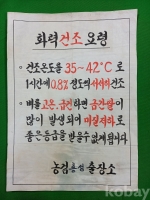 화력건조 요령
· 건조온도를 35~42°C 로
1시간에 0.8% 정도의 서서히 건조
· 벼를 고온, 급건 하면 금간쌀이
많이 발생되어 마굴져라로
좋은 등급을 받을수 없게 됩니다
농검 출장소
kobay